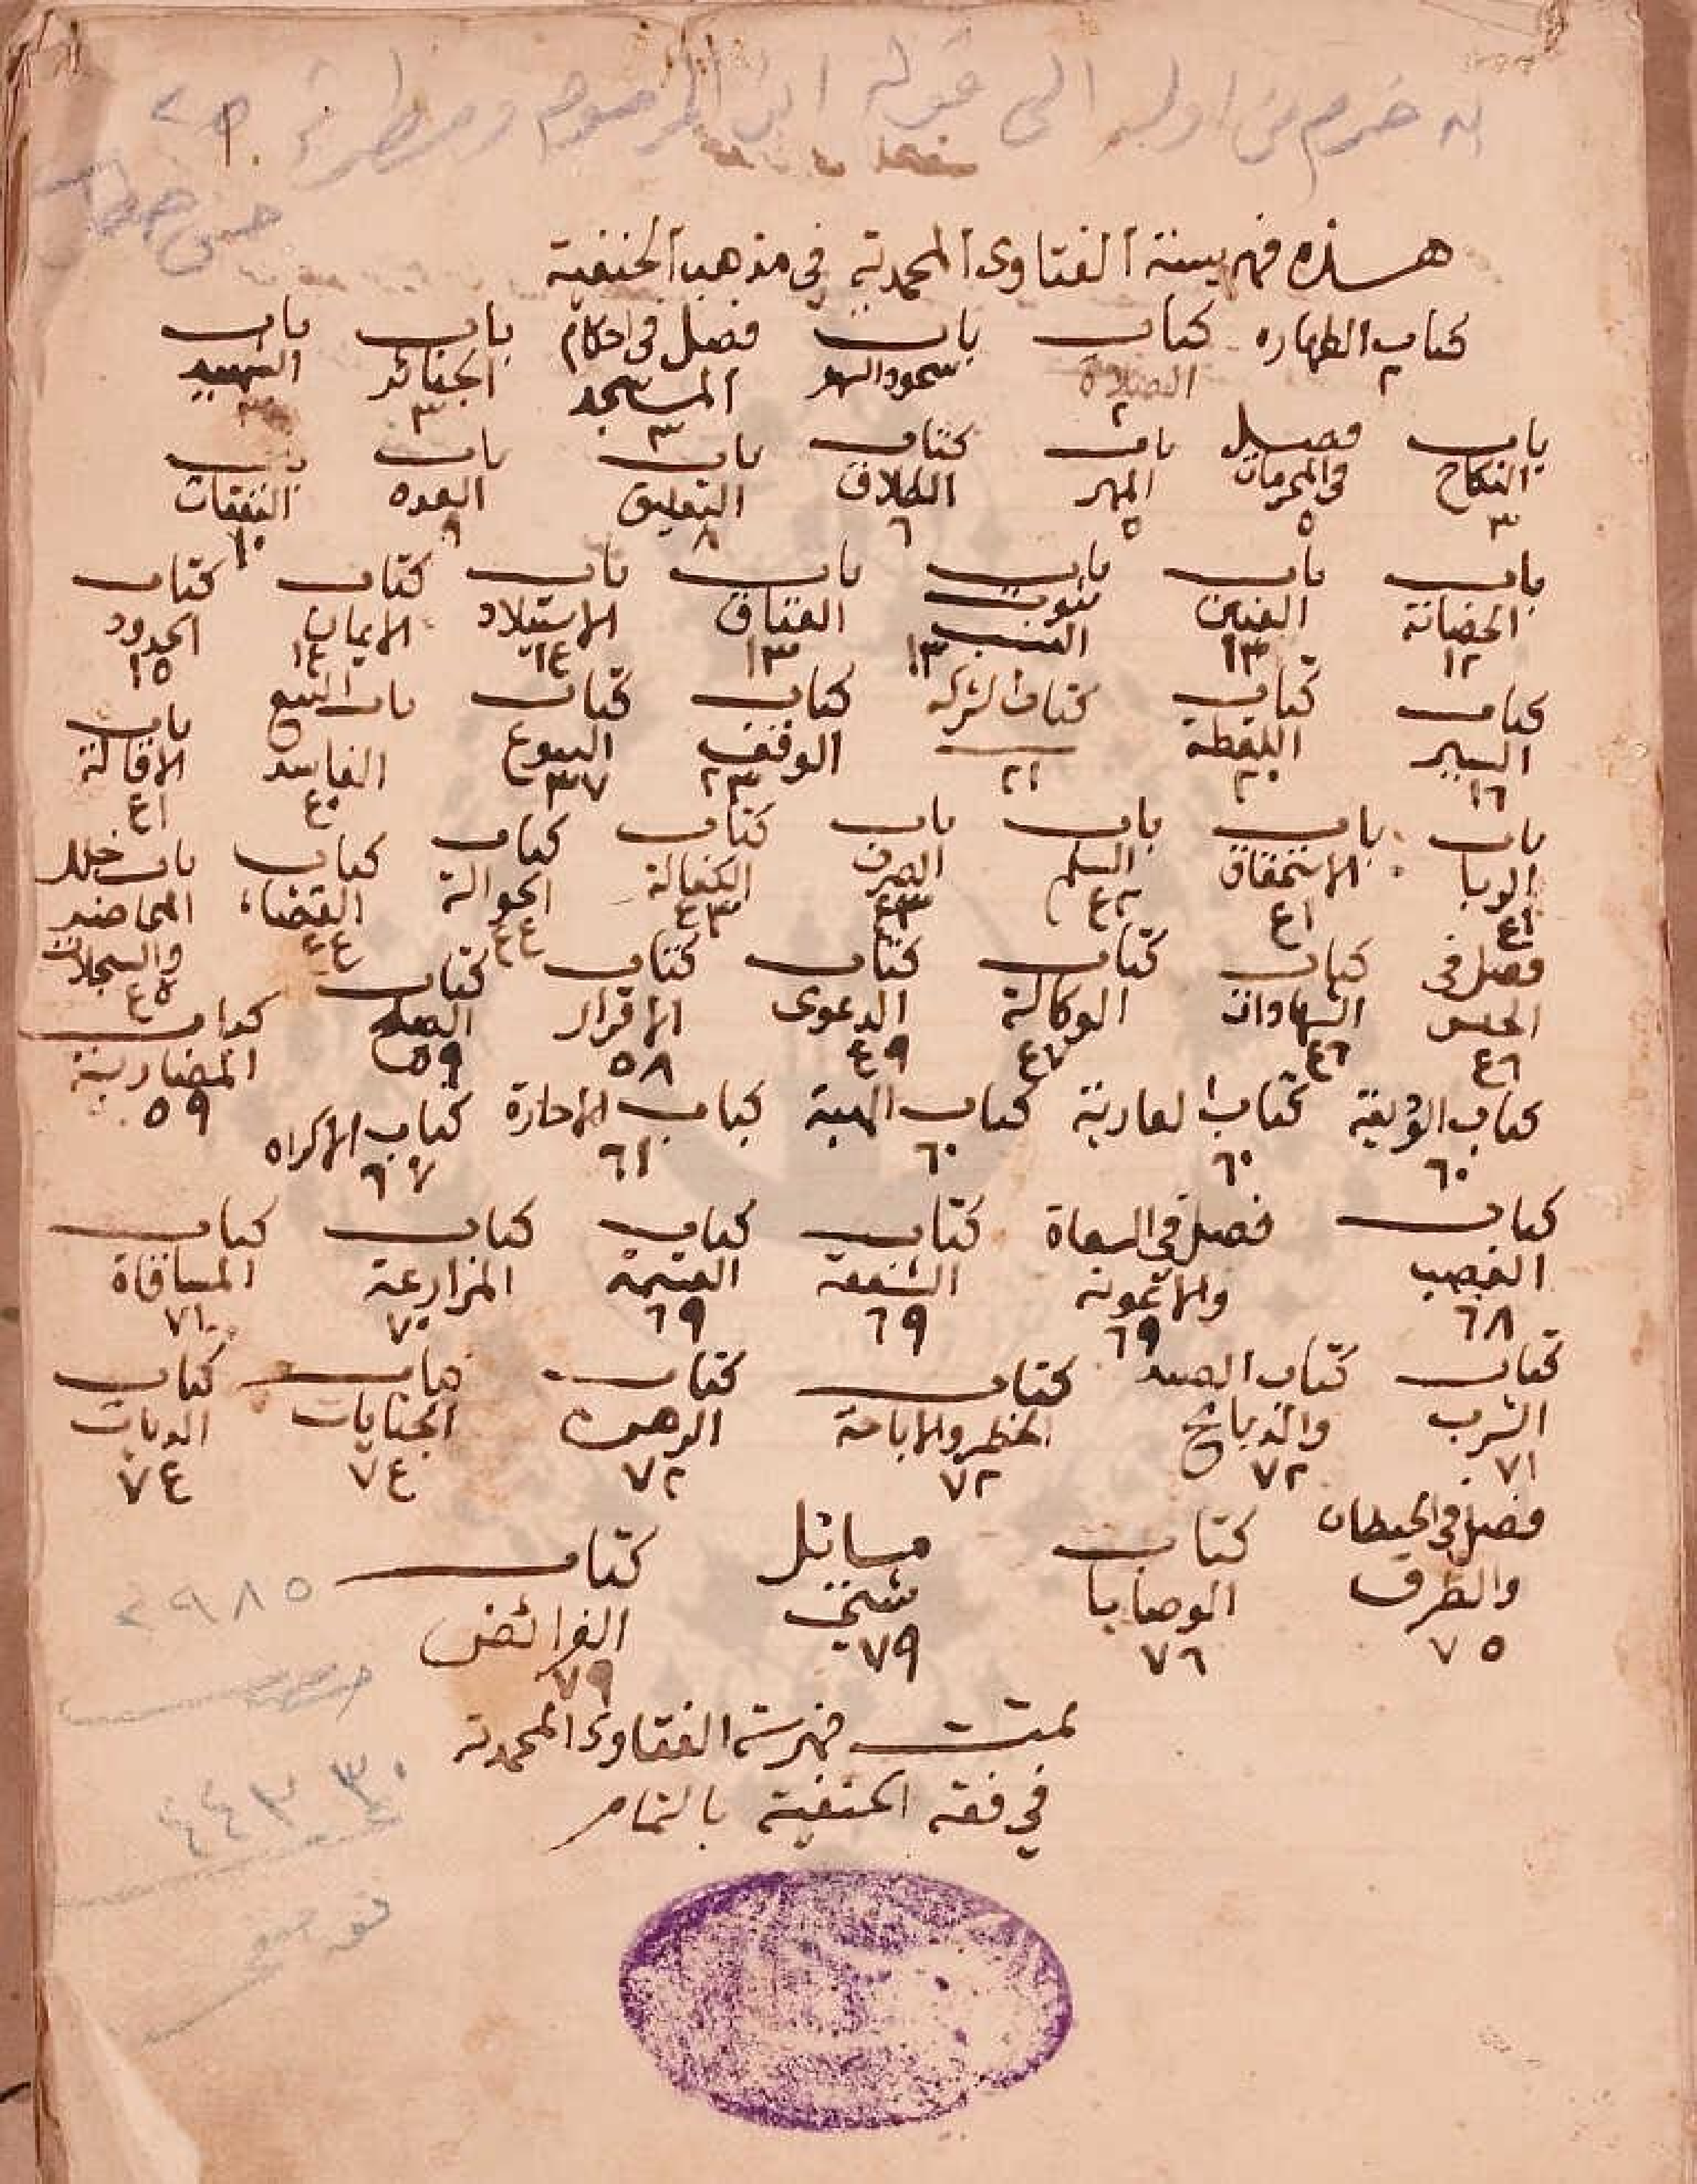 به خرم من اوله الى قوله ابن المرحوم
هذه فهرسة الفتاوى المحمدية في مذهب الحنفية
كتاب الطهاره ٢ كتاب الصلاة ٢ باب سجود السهو فصل في احكام المسجد ٣ باب الجنائز ٣ باب الشهيد ٣
باب النكاح ٣ فصل في المحرمات ٥ باب المهر ٥ كتاب الطلاق ٦ باب التعليق ٨ باب العده ٩ باب النفقات ١٠
باب الحضانة ١٢ باب العنين ١٣ باب ثبوت النسب ١٣ باب العتاق ١٣ باب الاستيلاد ١٤ كتاب الايمان ١٤ كتاب الحدود ١٥
كتاب السير ١٦ كتاب اللقطة ٢٠ كتاب الشركه ٢١ كتاب الوقف ٢٣ كتاب البيوع ٣٧ باب البيع الفاسد ٤٠ باب الاقالة ٤١
باب الربا ٤١ باب الاستحقاق ٤١ باب السلم ٤٢ باب الصرف ٤٣ كتاب الكفالة ٤٣ كتاب الحوالة ٤٤ كتاب القضاء ٤٤ باب خلل المحاضر والسجلات ٤٥
فصل في الحبس ٤٦ كتاب الشهادات ٤٦ كتاب الوكالة ٤٧ كتاب الدعوى ٤٩ كتاب الاقرار ٥٨ كتاب الصلح ٥٩ كتاب المضاربة ٥٩
كتاب الوديعة ٦٠ كتاب العارية ٦٠ كتاب الهبة ٦٠ كتاب الاجارة ٦١ كتاب الاكراه ٦٧
كتاب الغصب ٦٨ فصل في السعاة والاعونه ٦٩ كتاب الشفعة ٦٩ كتاب القسمة ٦٩ كتاب المزارعة ٧٠ كتاب المساقاة ٧١
كتاب الشرب ٧١ كتاب الصيد والذبايح ٧٢ كتاب الحظر والاباحة ٧٢ كتاب الرهن ٧٢ كتاب الجنايات ٧٤ كتاب الديات ٧٤
فصل في الحيطان والطرق ٧٥ كتاب الوصايا ٧٦ مسائل شتى ٧٩ كتاب الفرائض ٧٩
تمت فهرسة الفتاوى المحمدية
في فقه الحنفية بالتمام